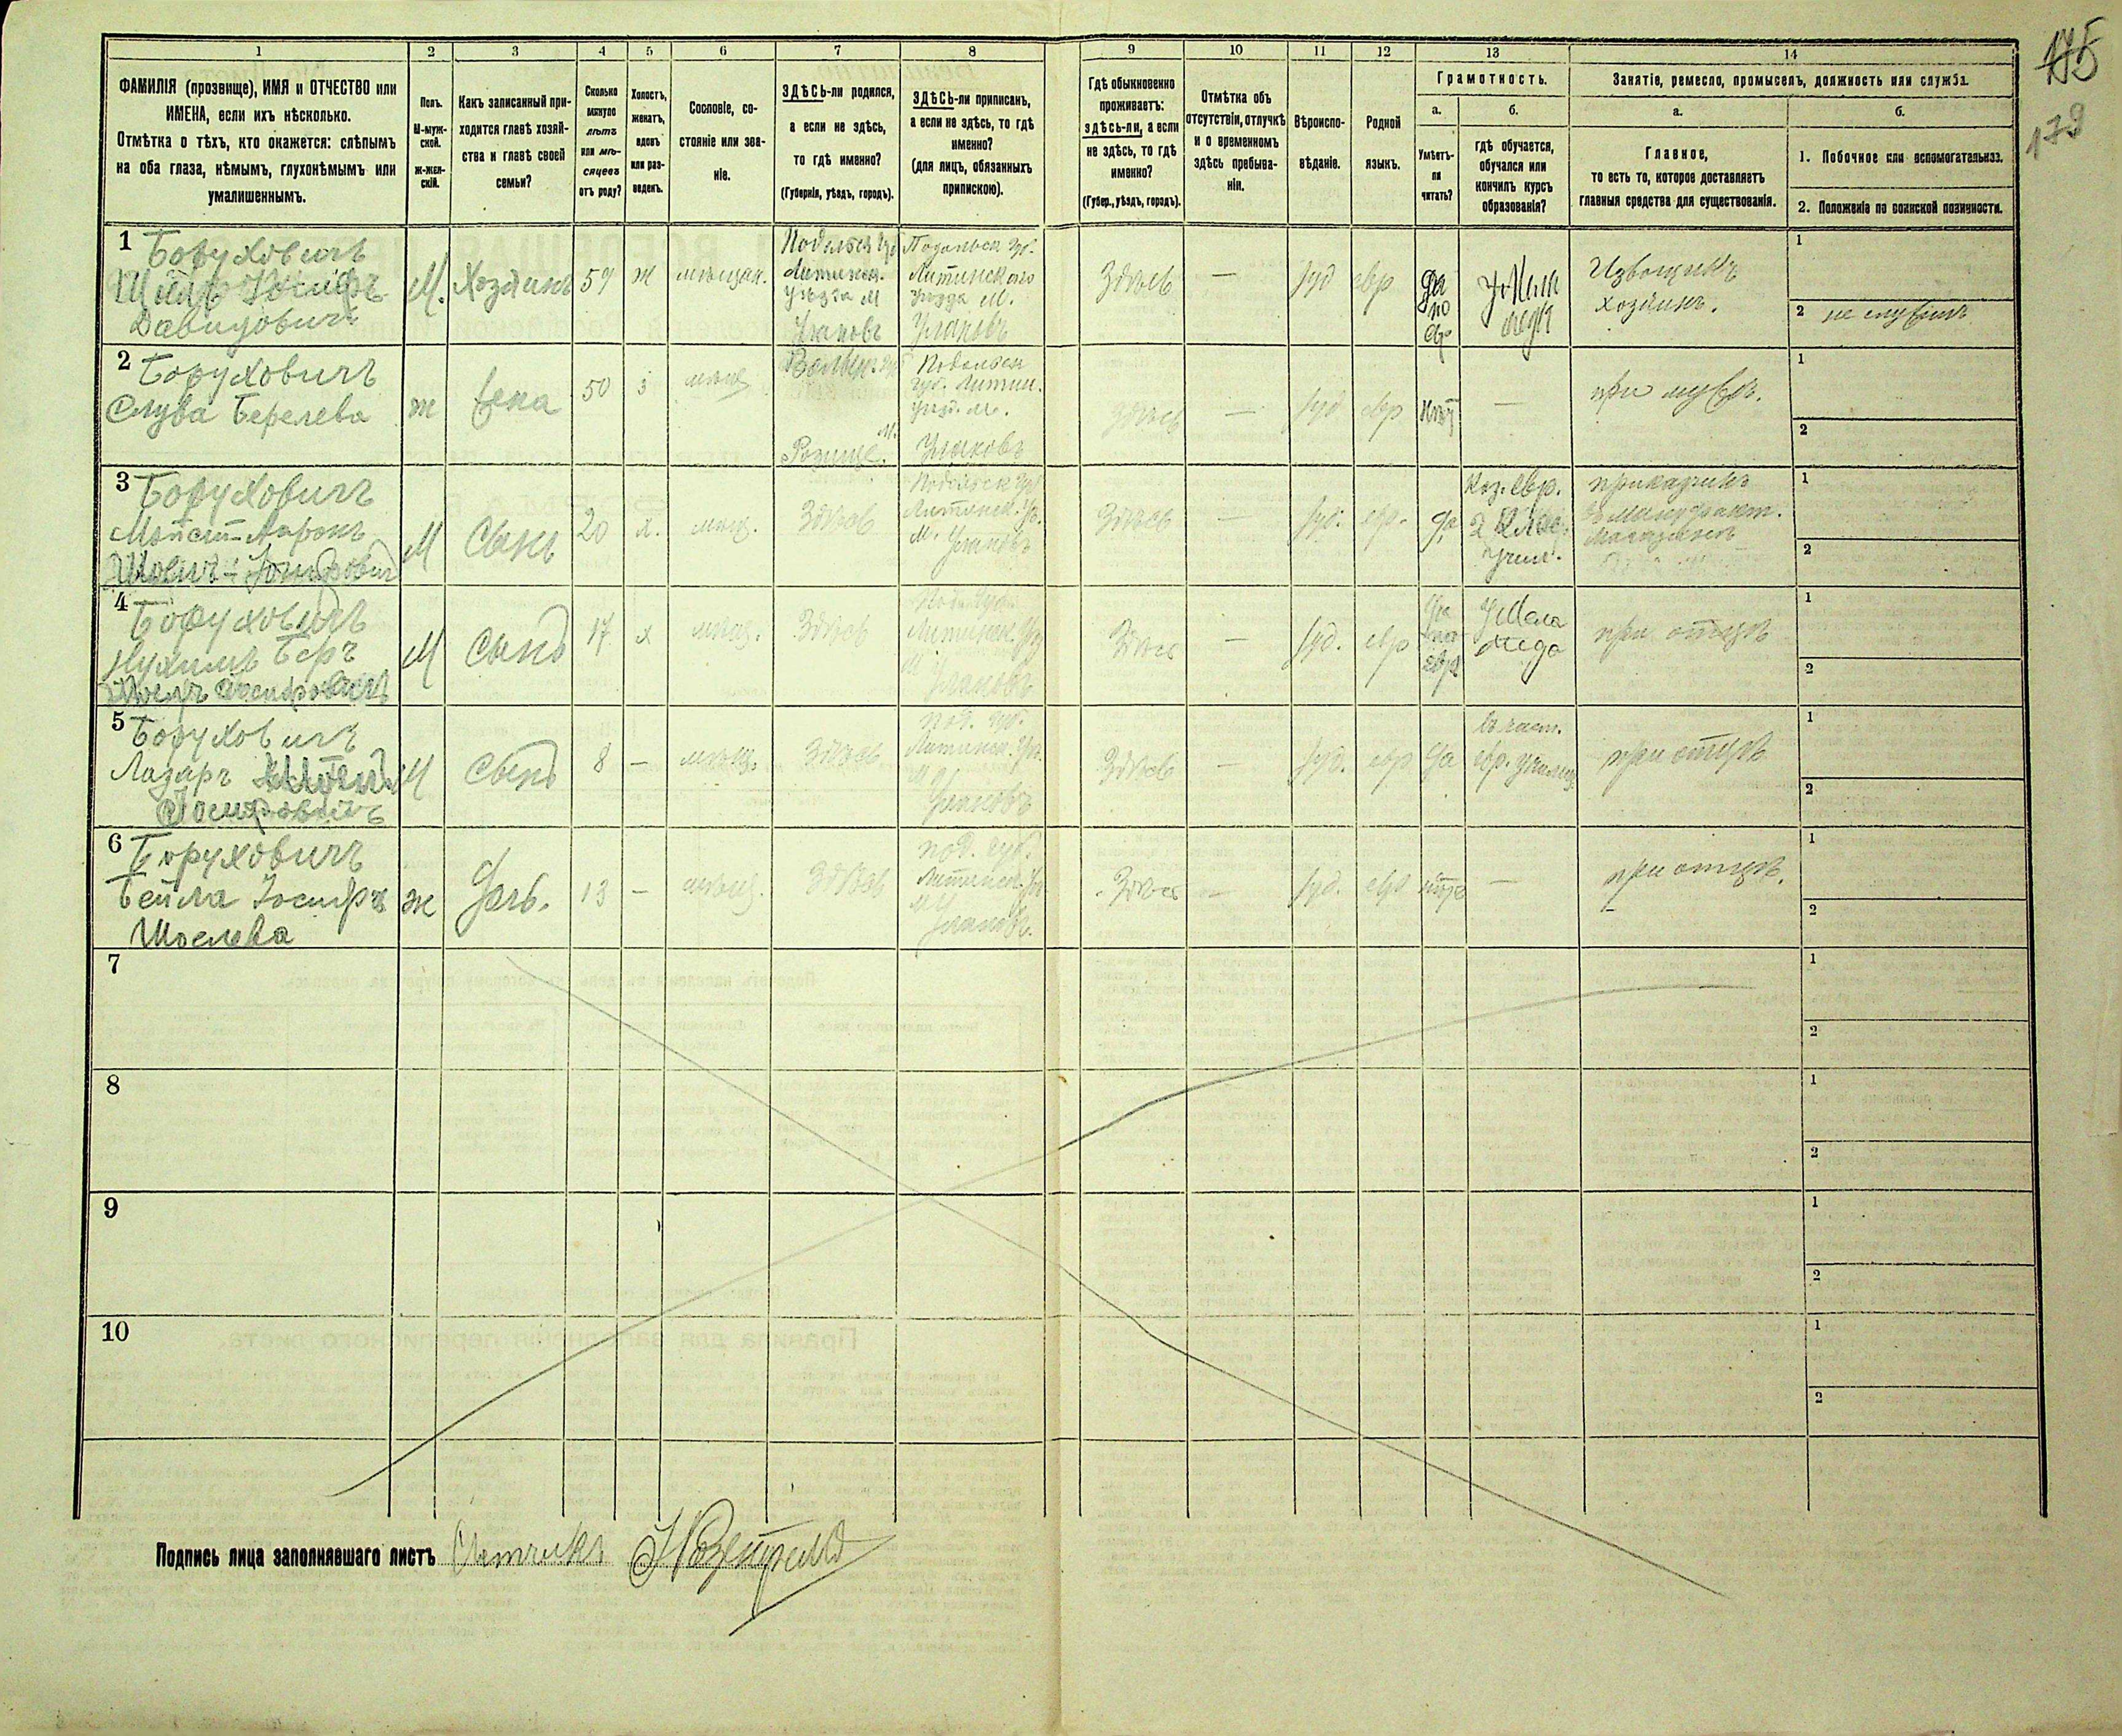 1 2 3 4 5 6 7 8 9 10 11 12 13 14
ФАМИЛІЯ (прозвище), ИМЯ и ОТЧЕСТВО или
ИМЕНА, если ихъ нѣсколько.
Отмѣтка о тѣхъ, кто окажется: слѣпымъ
на оба глаза, нѣмымъ, глухонѣмымъ или
умалишеннымъ.
Полъ.
М-муж-
ской.
ж-жен-
скій.
Какъ записанный при-
ходится главѣ хозяй-
ства и главѣ своей
семьи?
Сколько
минуло
лѣтъ
или мѣ-
сяцевъ
отъ роду?
Холостъ,
женатъ,
вдовъ
или раз-
веденъ.
Сословіе, со-
стояніе или зва-
ніе.
ЗДѢСЬ-ли родился,
а если не здѣсь,
то гдѣ именно?
(Губернія, уѣздъ, городъ).
ЗДѢСЬ-ли приписанъ,
а если не здѣсь, то гдѣ
именно?
(для лицъ, обязанныхъ
припискою).
Гдѣ обыкновенно
проживаетъ:
здѣсь-ли, а если
не здѣсь, то гдѣ
именно?
(Губер., уѣздъ, городъ).
Отмѣтка объ
отсутствіи, отлучкѣ
и о временномъ
здѣсь пребыва-
ніи.
Вѣроиспо-
вѣданіе.
Родной
языкъ.
Грамотность.
а.
Умѣетъ-
ли
читать?
б.
гдѣ обучается,
обучался или
кончилъ курсъ
образованія?
Занятіе, ремесло, промыселъ, должность или служба.
а.
Главное,
то есть то, которое доставляетъ
главныя средства для существованія.
б.
1. Побочное или вспомогательное.
2. Положеніе по воинской повинности.
175
179
1 Боруховичъ
Іосифъ
Давидовичъ
М. Хозяинъ 57 ж мѣщан.
Подольск. губ
Литинск.
уѣзда м
Улановъ
Подольск. губ.
Литинского
уѣзда м.
Улановъ
Здѣсь — Іуд евр
да
по
евр
у Мела
меда
Извощикъ
хозяинъ.
1
2 не служилъ
2 Боруховичъ
Слува Берелева
ж жена 50 з мѣщ
Волын. губ
м.
Рожище.
Подольск
губ. Литин.
уѣз. м.
Улановъ
Здѣсь — Іуд евр нѣт —
при мужѣ.
1
2
3 Боруховичъ
Ааронъ
М Сынъ 20 х. мѣщ. Здѣсь
Подольск губ
Литинск. уѣ.
м. Улановъ
Здѣсь — Іуд. евр. да
Каз. Евр.
2 клас.
учил.
приказчикъ
в мануфакт.
магазинѣ
1
2
4 Боруховичъ
Нухимъ Беръ
М Сынъ 17 х мѣщ. Здѣсь
Литинск. уѣз
м Улановъ
Здѣсь — Іуд. евр
да
по
евр
у Мела
меда
при отцѣ
1
2
5 Боруховичъ
Лазарь
Іосифовичъ
М Сынъ 8 — мѣщ. Здѣсь
под. губ.
Литинск. уѣз.
м
Улановъ
Здѣсь — Іуд. евр да
въ част.
евр. училищ.
при отцѣ
1
2
6 Боруховичъ
Бейла Іосифъ
Шоелева
ж Дочь. 13 — мѣщ. Здѣсь
под. губ.
Литинск. уѣз
м
Улановъ.
Здѣсь — Іуд. евр нѣт —
при отцѣ.
1
2
7
1
2
8
1
2
9
1
2
10
1
2
Подпись лица заполнявшаго листъ Счетчикъ